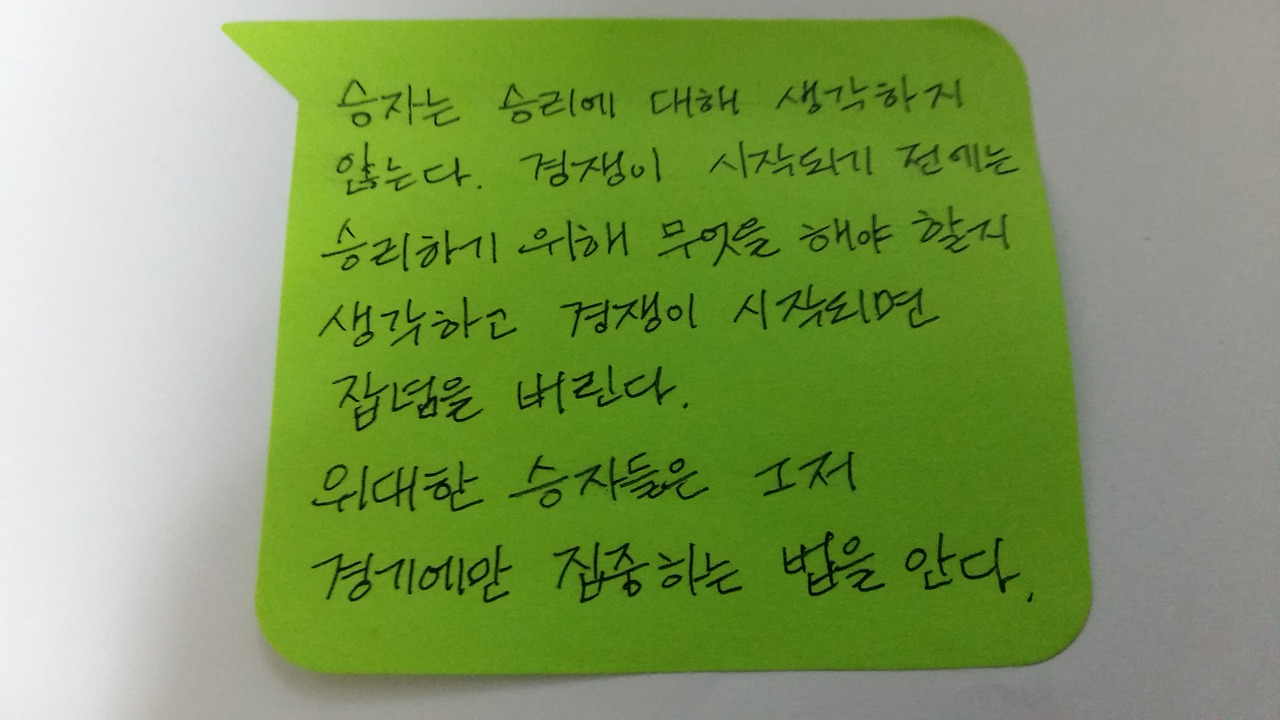 승자는 승리에 대해 생각하지
않는다. 경쟁이 시작되기 전에는
승리하기 위해 무엇을 해야 할지
생각하고 경쟁이 시작되면
잡념을 버린다.
위대한 승자들은 그저
경기에만 집중하는 법을 안다.